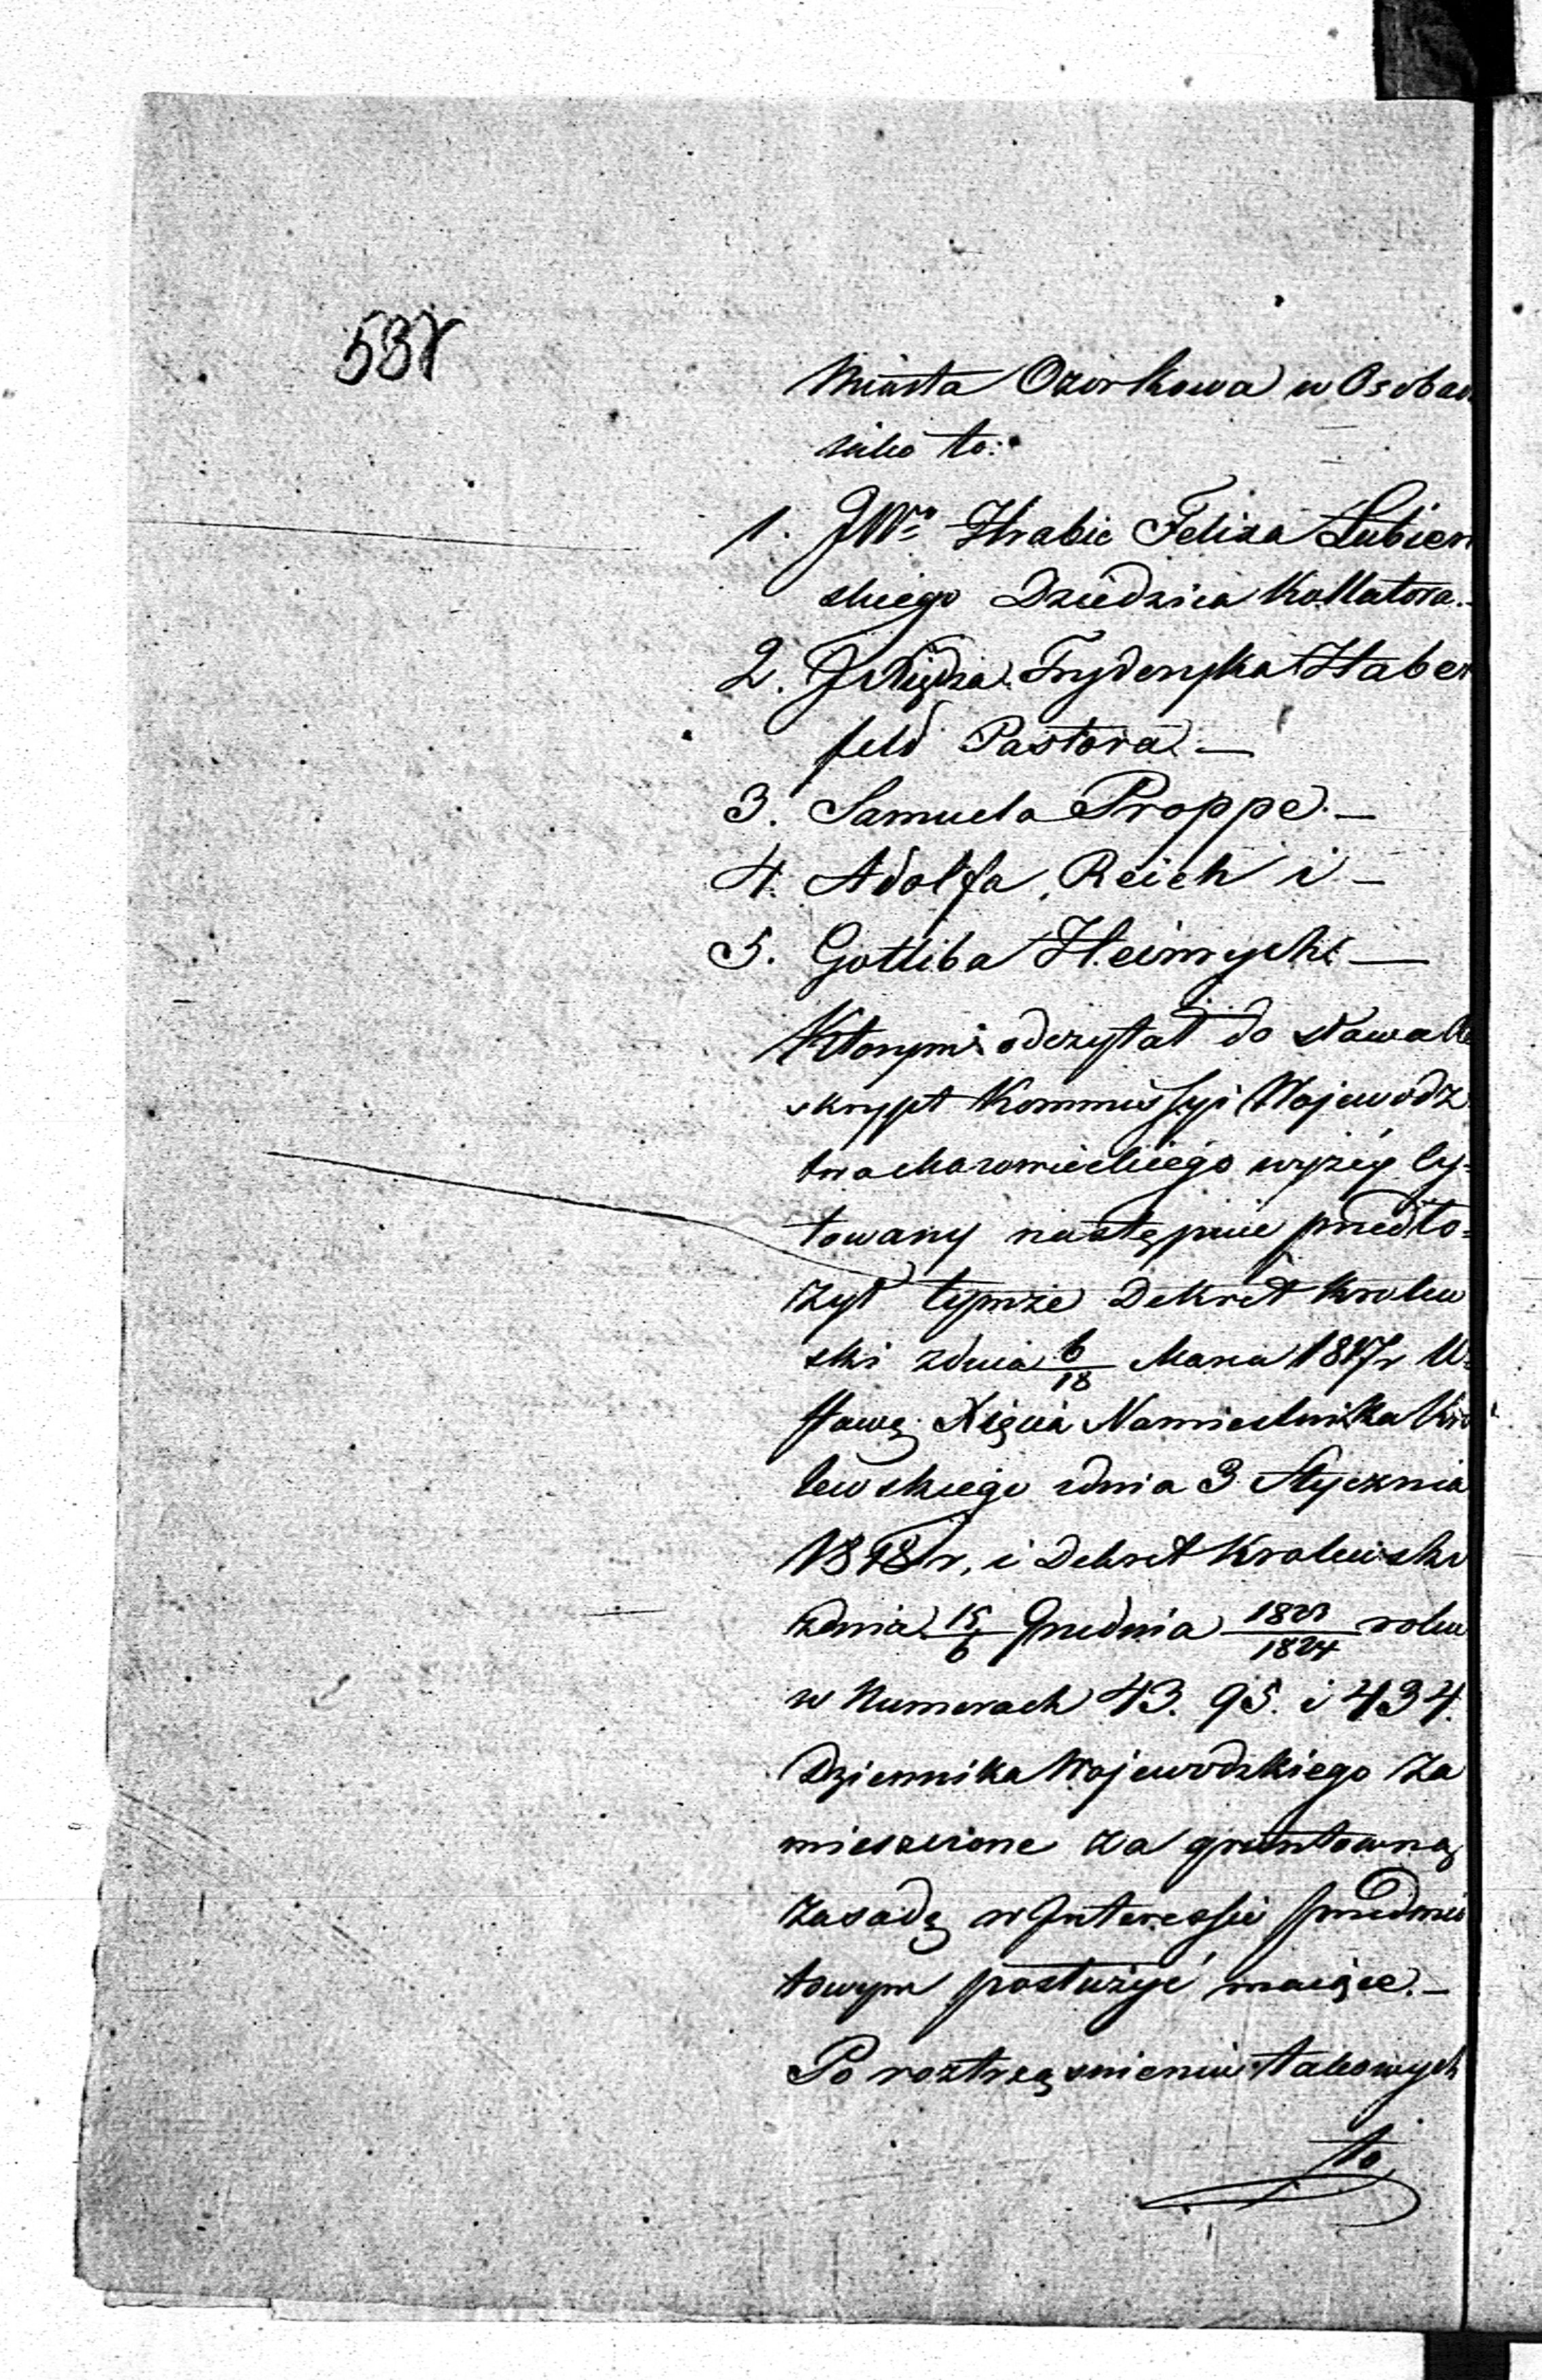 538
Miasta Ozorkowa w Osobach
iako to:
1. JWo Hrabie Felixa Łubień
skiego Dziedzica Kollatora.
2. JXiędza Fryderyka Haber
feld Pastora —
3. Samuela Proppe. —
4. Adolfa Reich i —
5. Gotliba Heinrych —
Ktorym odczytał do słowa Re
skrypt Kommissyi Wojewodz
twa Mazowieckiego wyżey Cy=
towany następnie przedło=
żył tymże Dekret Krolew
ski zdnia 6/18 Marca 1817r U=
stawę Xięcia Namiestnika Kro
lewskiego zdnia 3 Stycznia
1818 r, i Dekret Krolewski
zdnia 15/6 Grudnia 1823/1824 roku
w Numerach 43. 95. i 434.
Dziennika Wojewodzkiego za
mieszczone za gruntowną
zasadę w Interessie przedmio
towym posłużyć maiące. —
Po roztrząśnieniu takowych
to